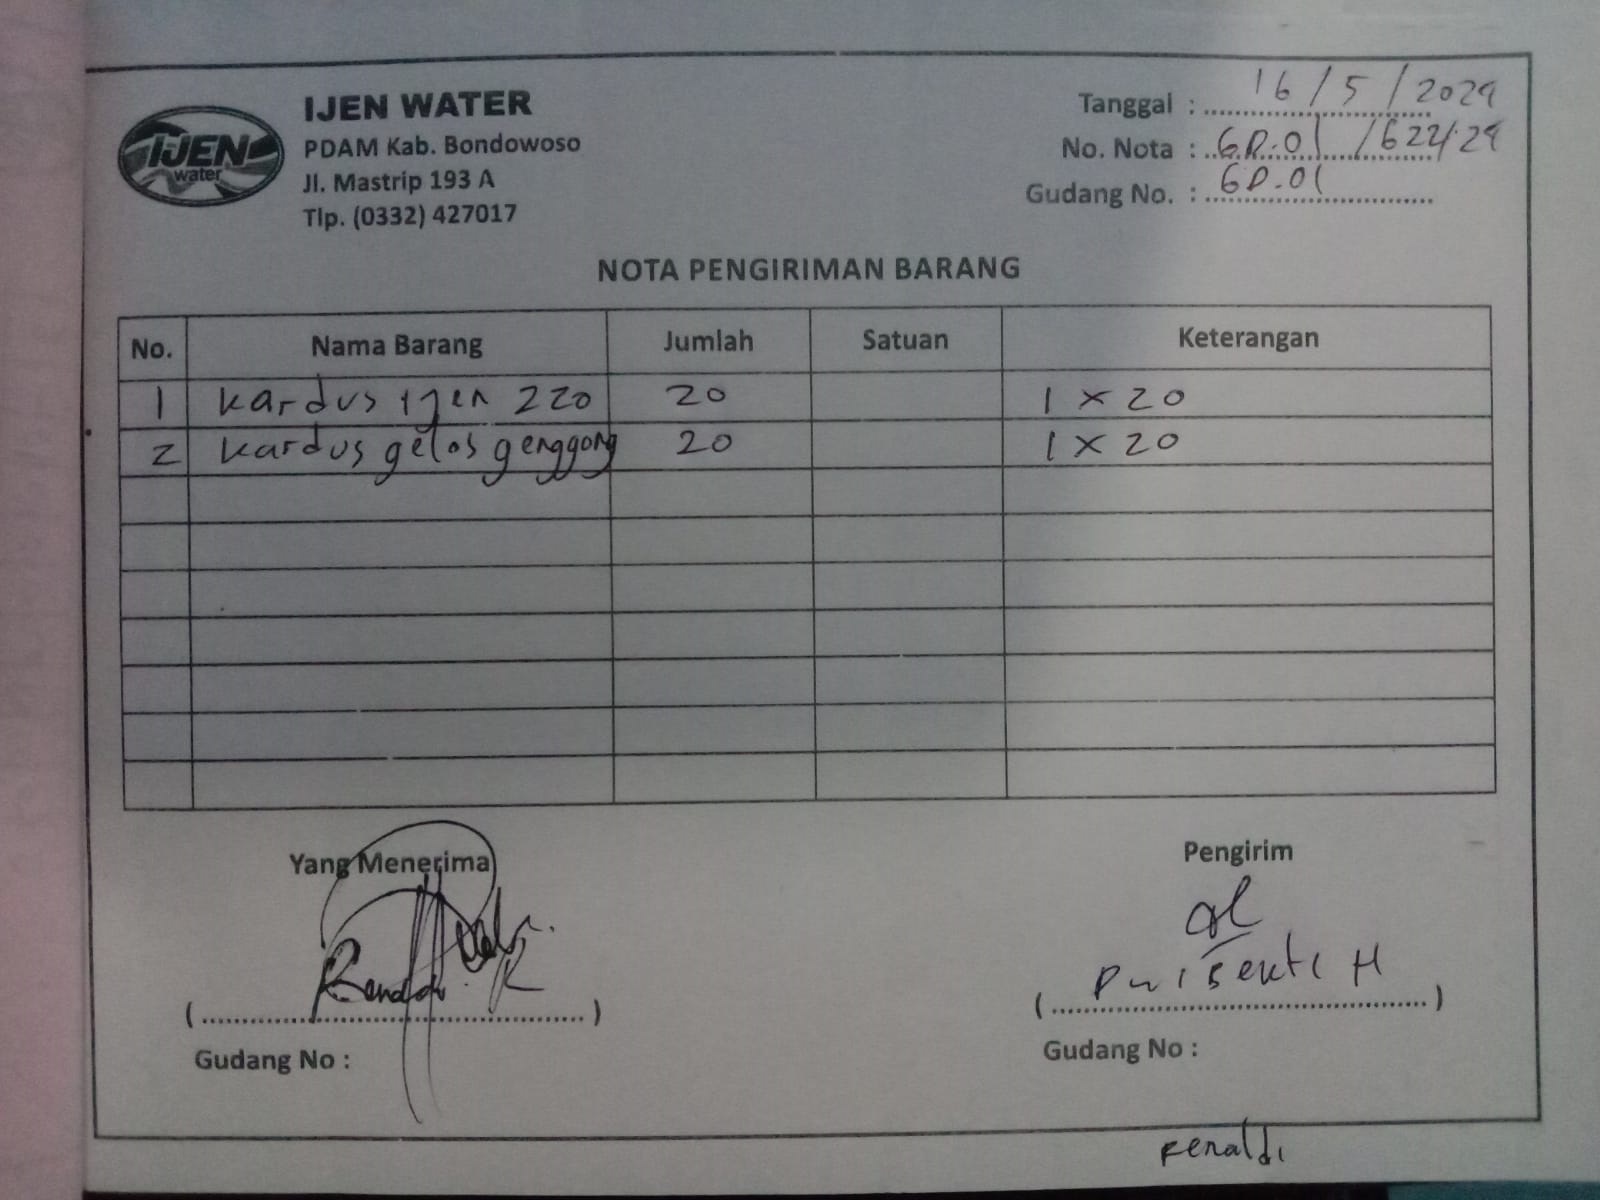 IJEN
water
IJEN WATER
PDAM Kab. Bondowoso
Jl. Mastrip 193 A
Tlp. (0332) 427017
Tanggal : 16 / 5 / 2024
No. Nota : GD.01 /622/24
Gudang No. : GD.01
NOTA PENGIRIMAN BARANG
No. Nama Barang Jumlah Satuan Keterangan
1 kardus ijen 220 20 1 x 20
2 kardus gelas genggong 20 1 x 20
Yang Menerima Pengirim
( ) ( H )
Gudang No : Gudang No :
Renaldi